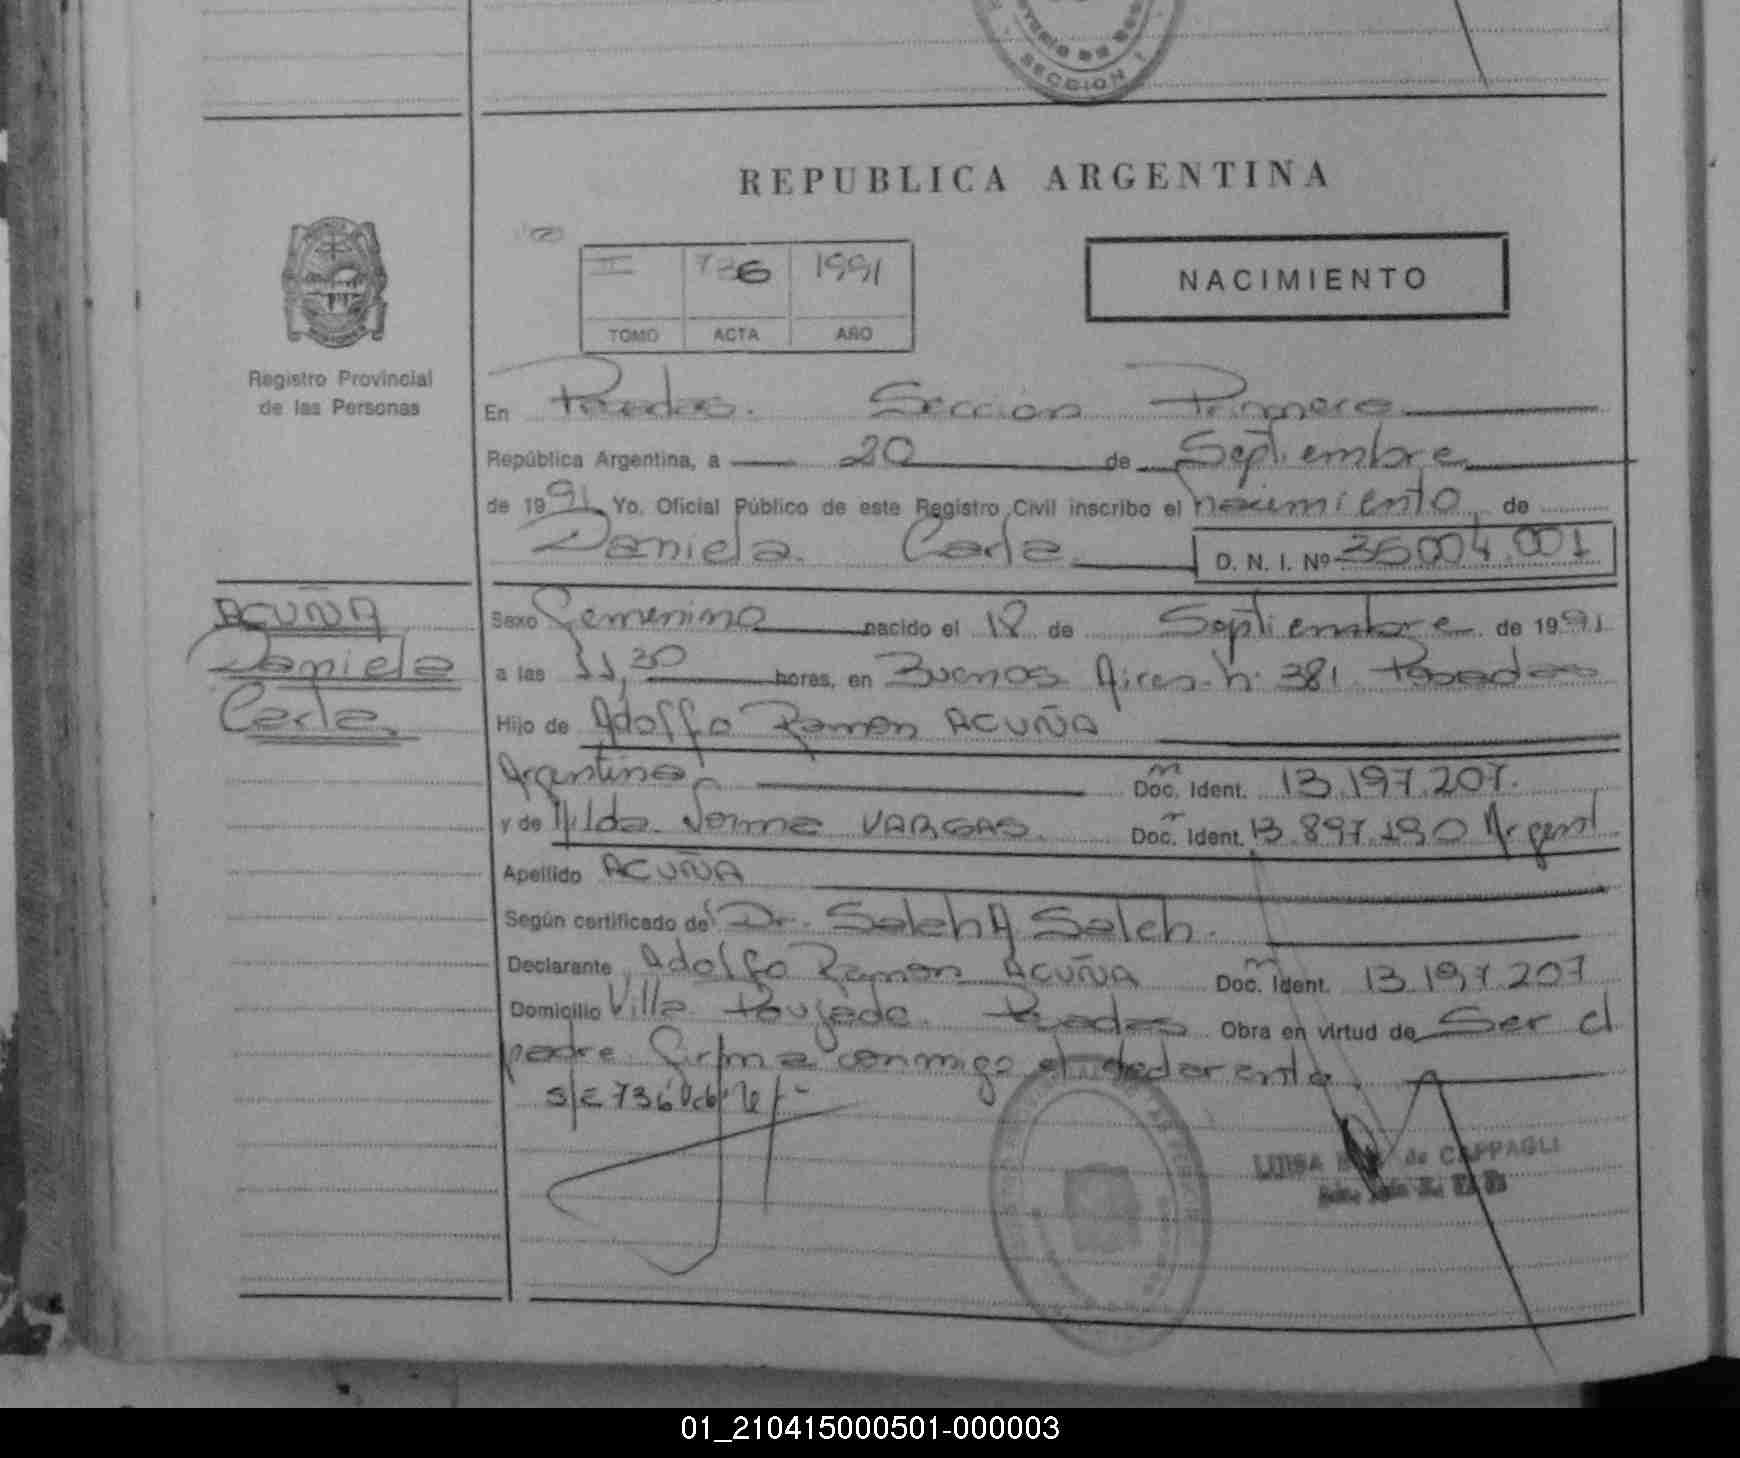 SECCION 1
REPUBLICA ARGENTINA
II 736 1991
TOMO ACTA AÑO
NACIMIENTO
Registro Provincial
de las Personas
En Posadas. Sección Primera
República Argentina, a 20 de Septiembre
de 1991 Yo, Oficial Público de este Registro Civil inscribo el nacimiento de
Daniela Carla D. N. I. Nº 36.004.001
ACUÑA
Daniela
Carla.
Sexo Femenino nacido el 18 de Septiembre de 1991
a las 11,30 horas, en Buenos Aires n: 381 Posadas
Hijo de Adolfo Ramon ACUÑA
Argentino Doc. Ident. 13.197.207.
y de Hilda Norma VARGAS Doc. Ident. 13.897.190 Argent
Apellido ACUÑA
Según certificado de Dr. Saleh A Saleh.
Declarante Adolfo Ramon ACUÑA Doc. Ident. 13.197.207
Domicilio Villa Poujade. Posadas Obra en virtud de Ser el
padre firma conmigo el declarante.
S/E 736
LUISA de CAPPAGLI
01_210415000501-000003